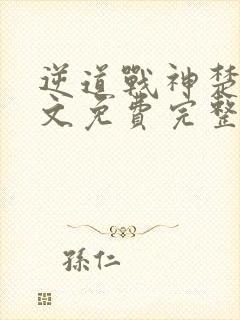 逆道戰神楚
文免費完整
孫仁